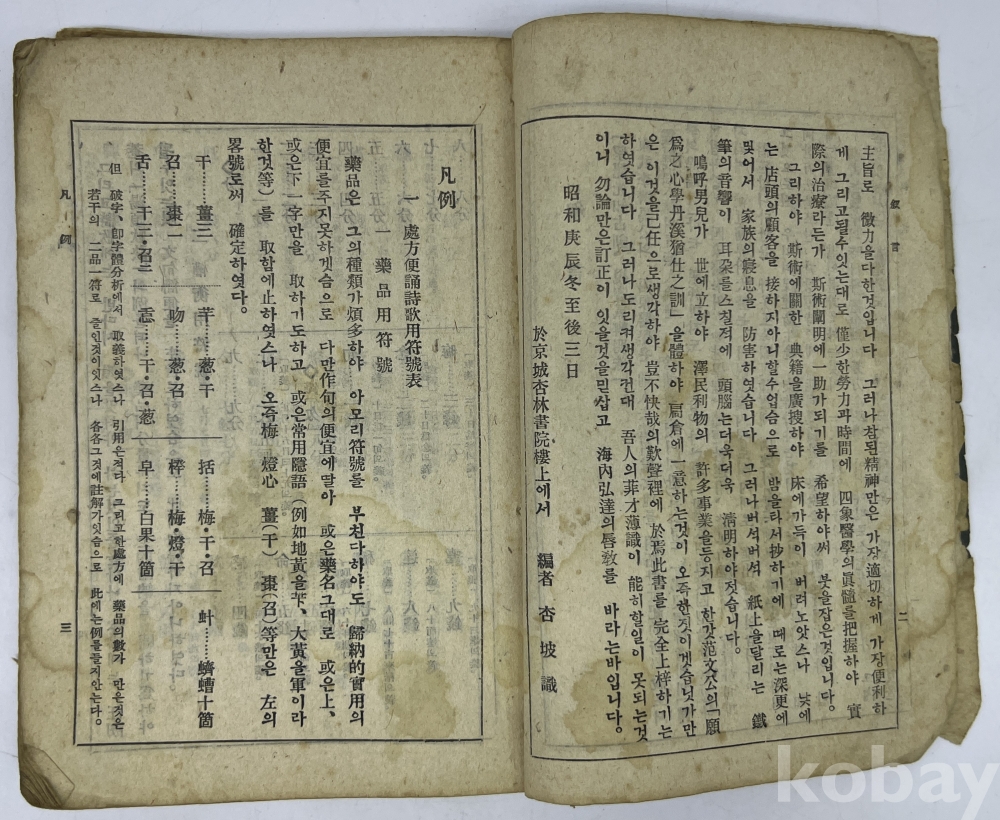 敍言
二
主旨로 微力을다한것입니다 그러나참된精神만은 가장適切하게 가장便利하
게 그리고될수잇는대로 僅少한勞力과時間에 四象醫學의眞髓를把握하야 實
際의治療라든가 斯術闡明에一助가되기를 希望하야써 붓을잡은것입니다。
그리하야 斯術에關한 典籍을廣搜하야 床에가득이 버려노앗스나 낮에
는 店頭의顧客을 接하지아니할수업슴으로 밤을타서抄하기에 때로는深更에
및어서 家族의寢息을 防害하엿습니다 그러나버석버석 紙上을달리는 鐵
筆의音響이 耳朶를스칠적에 頭腦는더욱더욱 淸明하야젓습니다。
嗚呼男兒가 世에立하야 澤民利物의 許多事業을등지고 한갓范文公의「願
爲之心學丹溪猶仕之訓」을體하야 扁倉에一意하는것이 오즉한짓이겟습닛가만
은 이것을己任으로생각하야 豈不快哉의歎聲裡에 於焉此書를 完全上梓하기는
하엿습니다 그러나도리켜생각건대 吾人의菲才薄識이 能히할일이 못되는것
이니 勿論만은訂正이 잇을것을믿삽고 海內弘達의唇敎를 바라는바입니다。
昭和庚辰冬至後三日
於京城杏林書院樓上에서
編者 杏坡 識
凡例
一 處方便誦詩歌用符號表
1 藥品用符號
藥品은 그의種類가煩多하야 아모리符號를 부친다하야도 歸納的實用의
便宜를주지못하겟슴으로 다만作句의便宜에딸아 或은藥名그대로 或은上、
或은下一字만을 取하기도하고 或은常用隱語(例如地黃을芐、大黃을軍이라
한것等)를 取함에止하엿스나 오즉梅 燈心 薑(干) 棗(召)等만은 左의
畧號로써 確定하엿다。
干……薑三 芉……葱・干 括……梅・干・召 蚶……蠐螬十箇
召……棗二 吻……葱・召 梓……梅・燈・干
舌……干三・召二 惉……干・召・葱 皁……白果十箇
但 破字、卽字體分析에서 取義하엿스나 引用은적다 그리고한處方에 藥品의數가 만은것은
若干의 二品一符로 줄인것이잇스나 各各그것에註解가잇슴으로 此에는例를들지안는다。
凡例
三
kobay